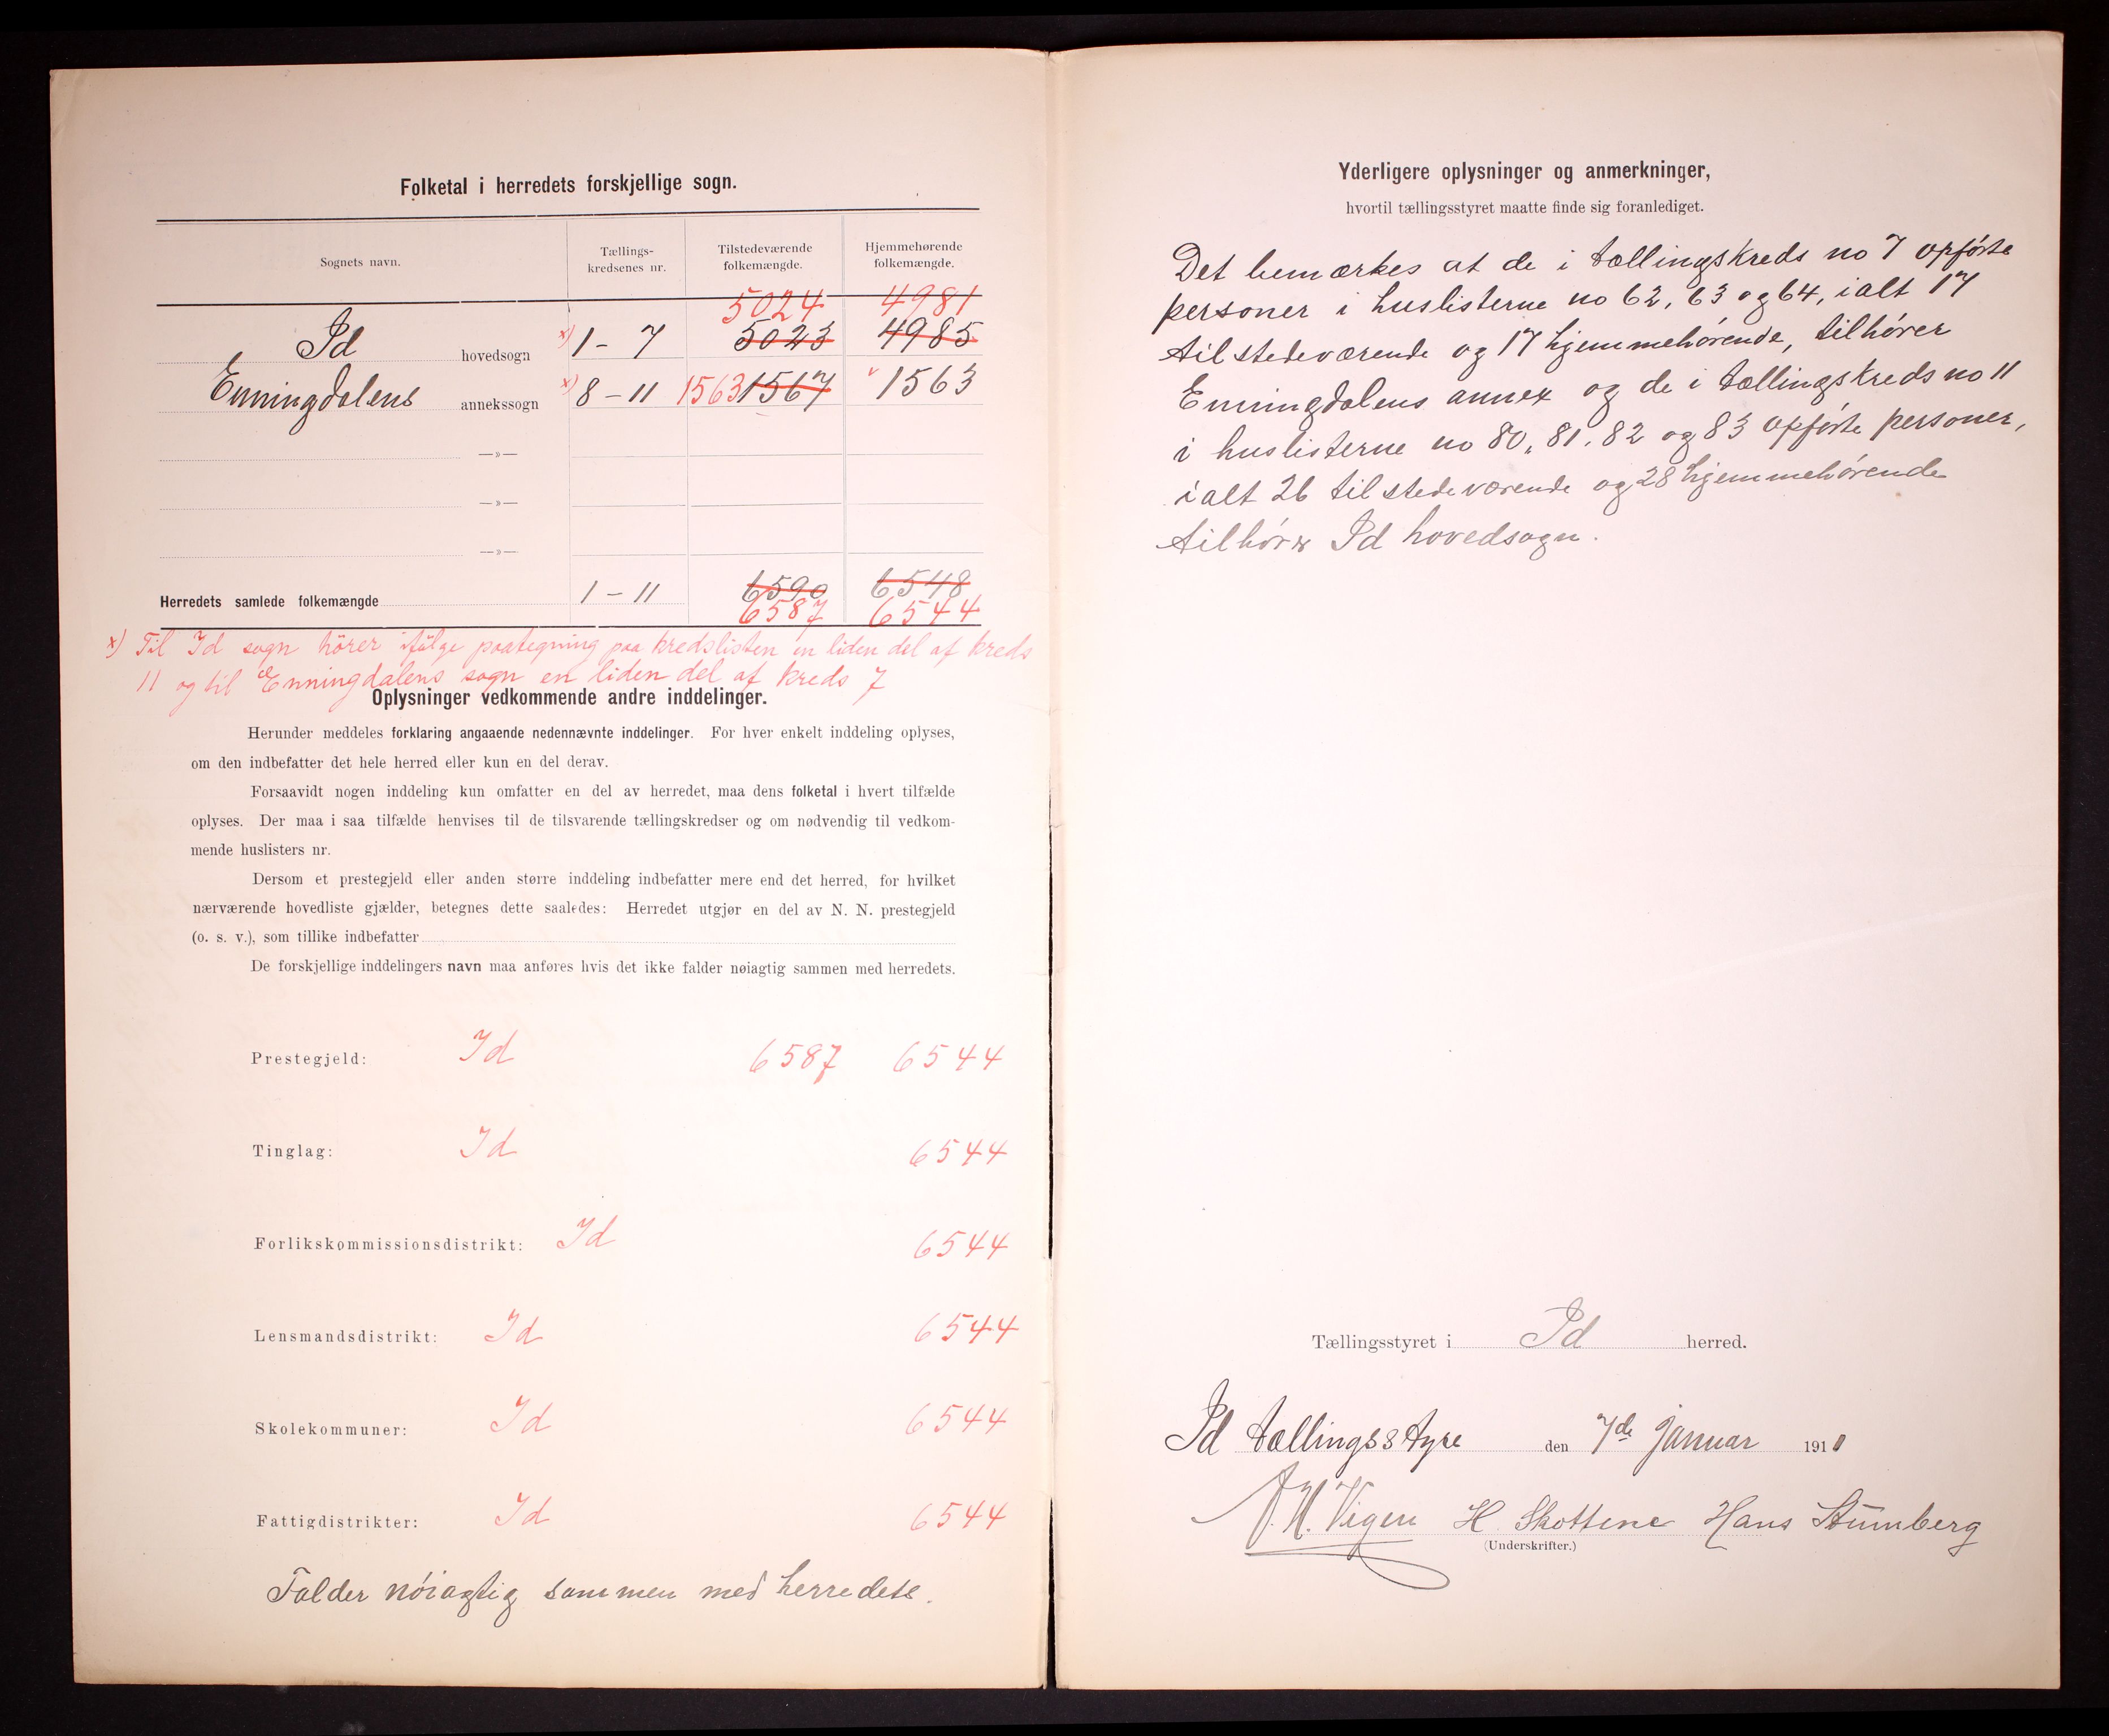 Folketal i herredets forskjellige sogn.
Sognets navn.
Tællings-
kredsenes nr.
Tilstedeværende
folkemængde.
Hjemmehørende
folkemængde.
5024 4981
Id hovedsogn x) 1 - 7 5023 4985
Enningdalens annekssogn x) 8 - 11 1563 1567 v 1563
—»—
—»—
—»—
Herredets samlede folkemængde 1 - 11 6590 6548
6587 6544
x) Til Id sogn hörer ifölge paategning paa kredslisten en liden del af kreds
11 og til Enningdalens sogn en liden del af kreds 7
Oplysninger vedkommende andre inddelinger.
Herunder meddeles forklaring angaaende nedennævnte inddelinger. For hver enkelt inddeling oplyses,
om den indbefatter det hele herred eller kun en del derav.
Forsaavidt nogen inddeling kun omfatter en del av herredet, maa dens folketal i hvert tilfælde
oplyses. Der maa i saa tilfælde henvises til de tilsvarende tællingskredser og om nødvendig til vedkom-
mende huslisters nr.
Dersom et prestegjeld eller anden større inddeling indbefatter mere end det herred, for hvilket
nærværende hovedliste gjælder, betegnes dette saaledes: Herredet utgjør en del av N. N. prestegjeld
(o. s. v.), som tillike indbefatter
De forskjellige inddelingers navn maa anføres hvis det ikke falder nøiagtig sammen med herredets.
Prestegjeld: Id 6587 6544
Tinglag: Id 6544
Forlikskommissionsdistrikt: Id 6544
Lensmandsdistrikt: Id 6544
Skolekommuner: Id 6544
Fattigdistrikter: Id 6544
Falder nóiagtig sammen med herredets.
Yderligere oplysninger og anmerkninger,
hvortil tællingsstyret maatte finde sig foranlediget.
Det bemærkes at de i tællingskreds no 7 opførte
personer i huslisterne no 62, 63 og 64, ialt 17
tilstedeværende og 17 hjemmehørende, tilhører
Enningdalens annex og de i tællingskreds no 11
i huslisterne no 80, 81, 82 og 83 opførte personer,
ialt 26 tilstedeværende og 28 hjemmehørende
tilhører Id hovedsogn.
Tællingsstyret i Id herred.
Id tællingsstyre den 7de januar 1911
H. Vigen H. Skottene Hans Stumberg
(Underskrifter.)